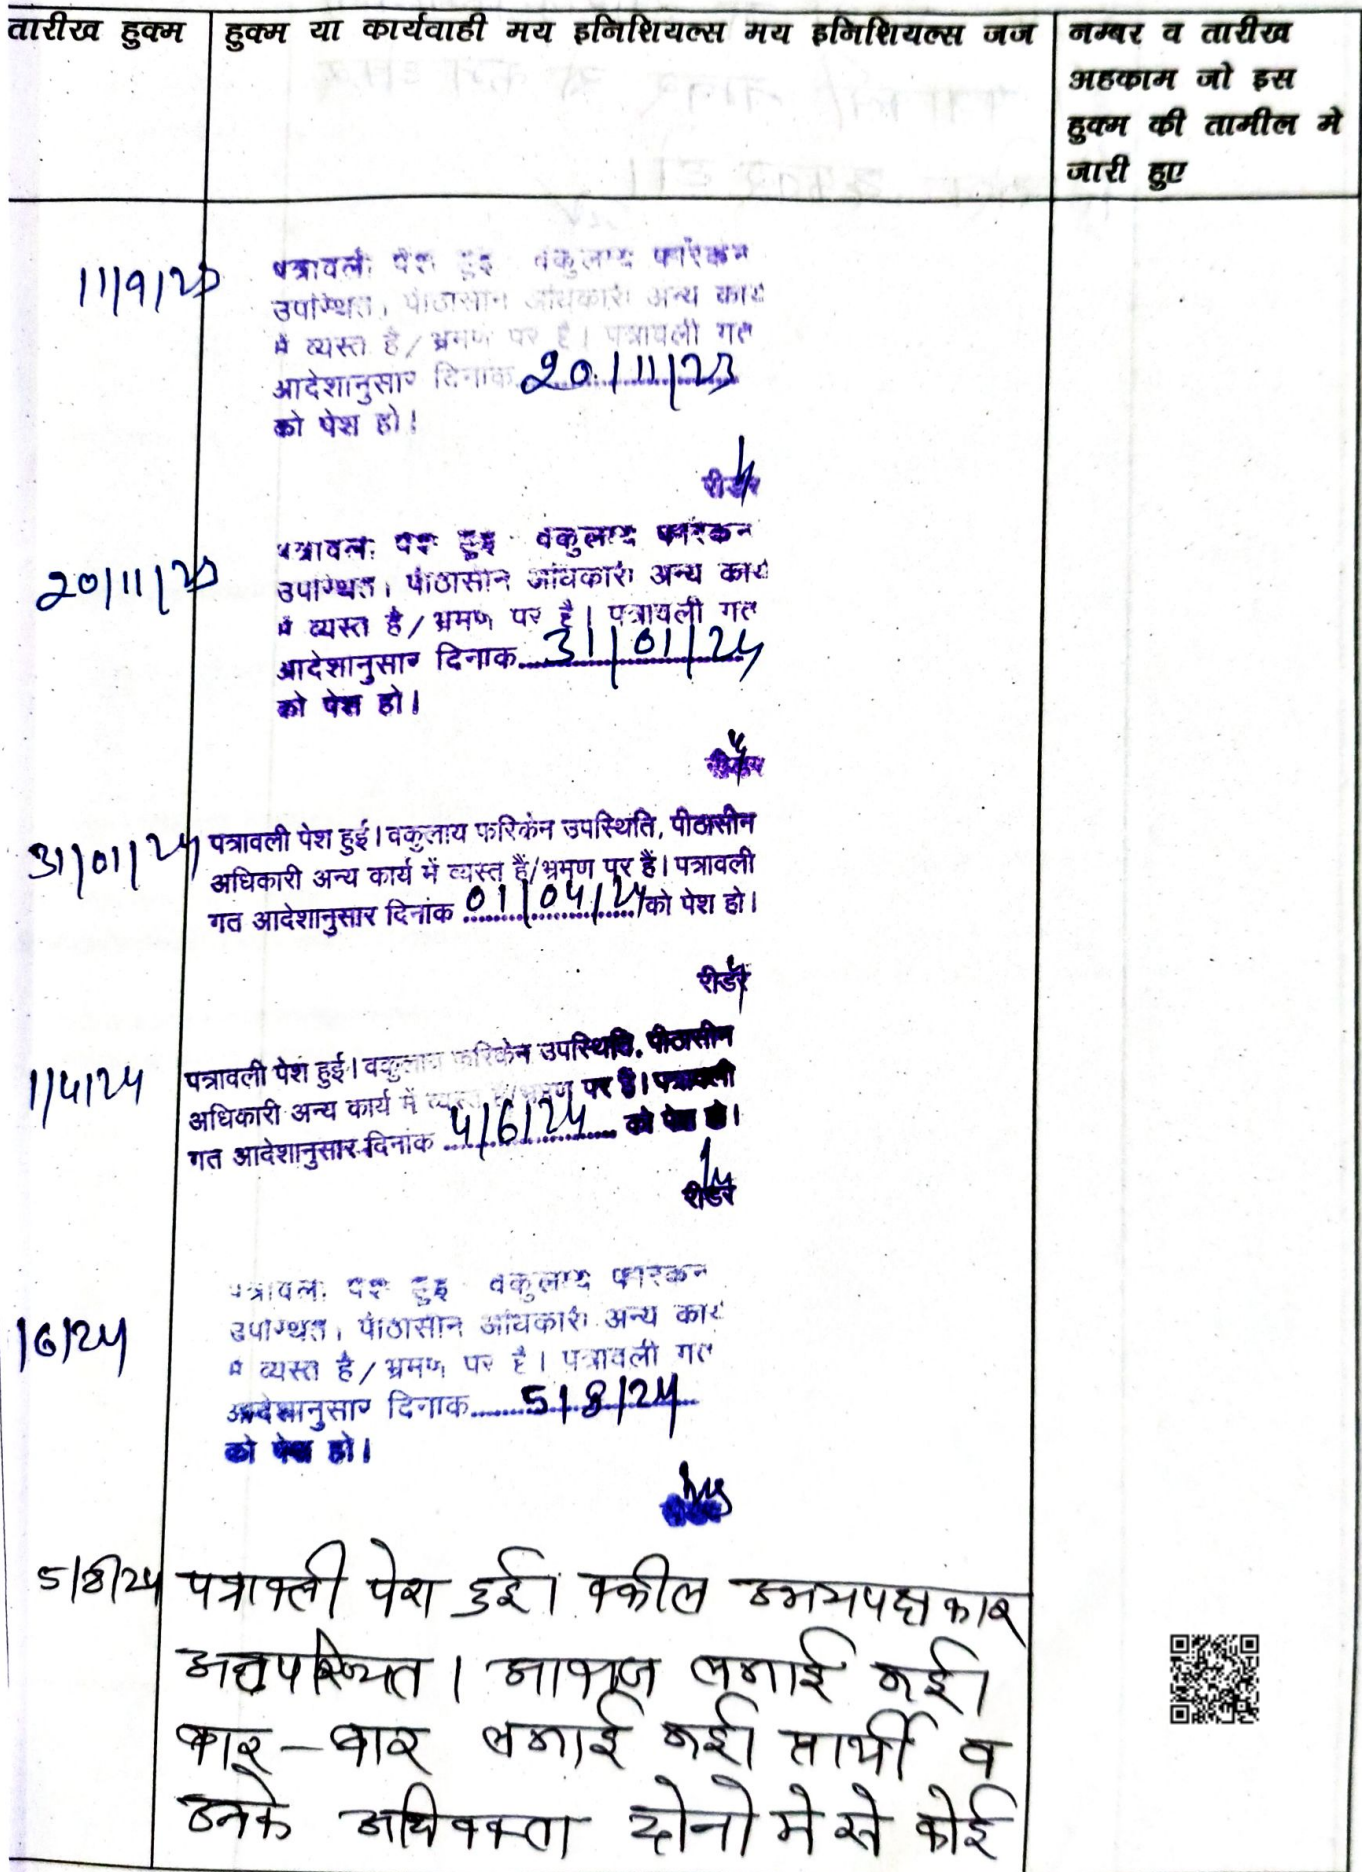 तारीख हुक्म
हुक्म या कार्यवाही मय इनिशियल्स मय इनिशियल्स जज
नम्बर व तारीख
अहकाम जो इस
हुक्म की तामील मे
जारी हुए
11/9/23
पत्रावली पेश हुई वकुलाय फरिकेन
उपस्थित, पीठासीन अधिकारी अन्य कार्य
में व्यस्त है/भ्रमण पर है। पत्रावली गत
आदेशानुसार दिनांक 20/11/23
को पेश हो।
रीडर
20/11/23
पत्रावली पेश हुई वकुलाय फरिकेन
उपस्थित, पीठासीन अधिकारी अन्य कार्य
में व्यस्त है/भ्रमण पर है। पत्रावली गत
आदेशानुसार दिनांक 31/01/24
को पेश हो।
रीडर
31/01/24
पत्रावली पेश हुई। वकुलाय फरिकेन उपस्थिति, पीठासीन
अधिकारी अन्य कार्य में व्यस्त हैं/भ्रमण पर हैं। पत्रावली
गत आदेशानुसार दिनांक 01/04/24 को पेश हो।
रीडर
1/4/24
पत्रावली पेश हुई। वकुलाय फरिकेन उपस्थिति, पीठासीन
अधिकारी अन्य कार्य में व्यस्त हैं/भ्रमण पर हैं। पत्रावली
गत आदेशानुसार दिनांक 4/6/24 को पेश हो।
रीडर
/6/24
पत्रावली पेश हुई वकुलाय फरिकेन
उपस्थित, पीठासीन अधिकारी अन्य कार्य
में व्यस्त है/भ्रमण पर है। पत्रावली गत
आदेशानुसार दिनांक 5/8/24
को पेश हो।
5/8/24
पत्रावली पेश हुई। वकील उभयपक्षकार
अनुपस्थित। आवाज लगाई गई।
बार-बार लगाई गई। प्रार्थी व
उनके अधिवक्ता दोनो मे से कोई